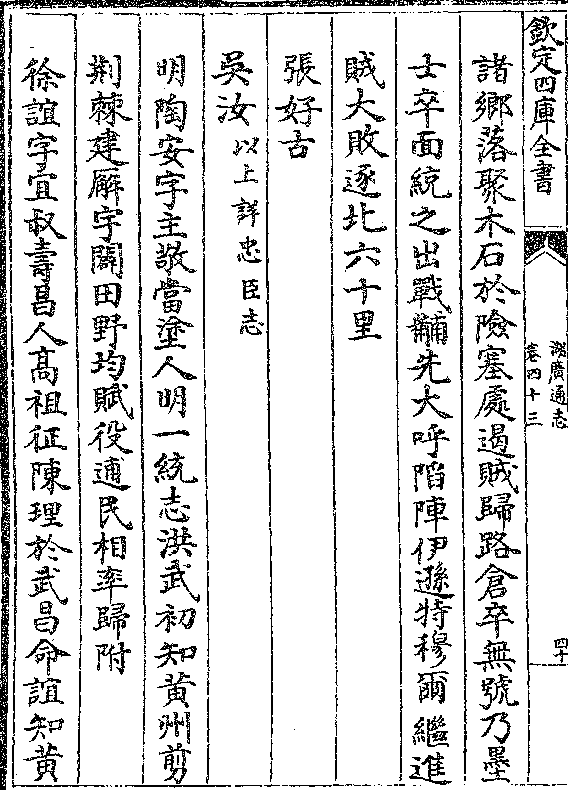 欽定四庫全書
湖廣通志
卷四十三
四十
諸鄉落聚木石於險塞處遏賊歸路倉卒無號乃墨
士卒面統之出戰黼先大呼陷陣伊遜特穆爾繼進
賊大敗逐北六十里
張好古
吳汝以上詳忠臣志
明陶安字主敬當塗人明一統志洪武初知黃州剪
荆棘建廨宇闢田野均賦役逋民相率歸附
徐誼字宜叔壽昌人高祖征陳理於武昌命誼知黃